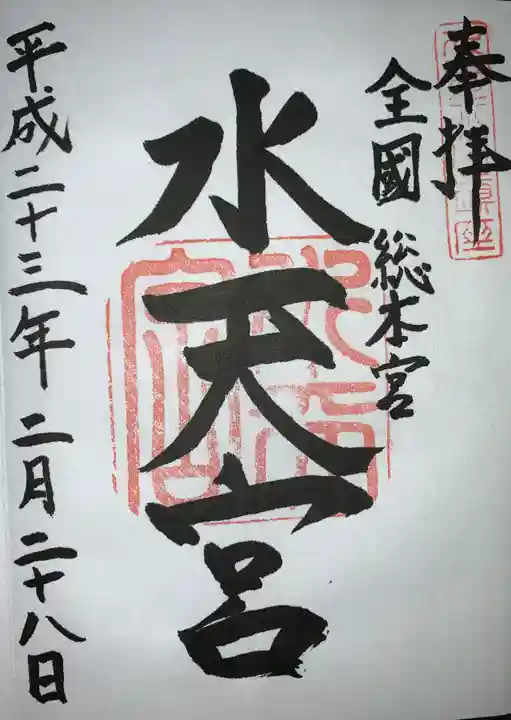 奉拝
全國総本宮
水天宮
平成二十三年二月二十八日